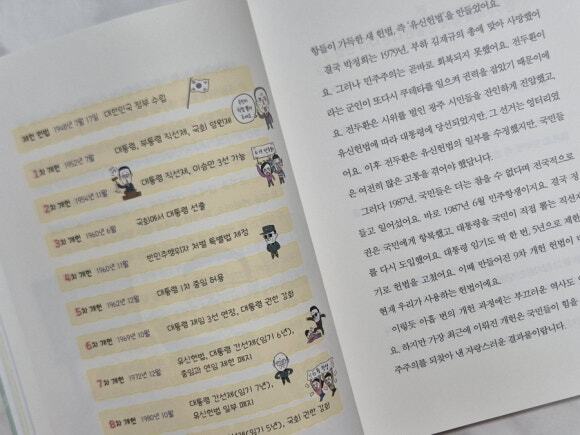 제헌 헌법 1948년 7월 17일 대한민국 정부 수립
1차 개헌 1952년 7월 대통령, 부통령 직선제, 국회 양원제
2차 개헌 1954년 11월 대통령 직선제, 이승만 3선 가능
3차 개헌 1960년 6월 국회에서 대통령 선출
4차 개헌 1960년 11월 반민주행위자 처벌 특별법 제정
5차 개헌 1962년 12월 대통령 1차 중임 허용
6차 개헌 1969년 10월 대통령 재임 3선 연장, 대통령 권한 강화
7차 개헌 1972년 12월 유신헌법, 대통령 간선제(임기 6년),
중임과 연임 제한 폐지
8차 개헌 1980년 10월 대통령 간선제(임기 7년),
유신헌법 일부 폐지
직선제(임기 5년), 국회 권한 강화
항들이 가득한 새 헌법, 즉 '유신헌법'을 만들었어요.
결국 박정희는 1979년, 부하 김재규의 총에 맞아 사망했어
요. 그러나 민주주의는 곧바로 회복되지 못했어요. 전두환이
라는 군인이 또다시 쿠데타를 일으켜 권력을 잡았기 때문이에
요. 전두환은 시위를 벌인 광주 시민들을 잔인하게 진압했고,
유신헌법에 따라 대통령에 당선되었지만, 그 선거는 엉터리였
어요. 이후 전두환은 유신헌법의 일부를 수정했지만, 국민들
은 여전히 많은 고통을 겪어야 했답니다.
그러다 1987년, 국민들은 더는 참을 수 없다며 전국적으로
들고 일어섰어요. 바로 1987년 6월 민주항쟁이지요. 결국 정
권은 국민에게 항복했고, 대통령을 국민이 직접 뽑는 직선제
를 다시 도입했어요. 대통령 임기도 딱 한 번, 5년으로 제한
기로 헌법을 고쳤어요. 이때 만들어진 9차 개헌 헌법이 바
현재 우리가 사용하는 헌법이에요.
이렇듯 아홉 번의 개헌 과정에는 부끄러운 역사도 있
요. 하지만 가장 최근에 이뤄진 개헌은 국민들이 힘을
주주의를 되찾아 낸 자랑스러운 결과물이랍니다.